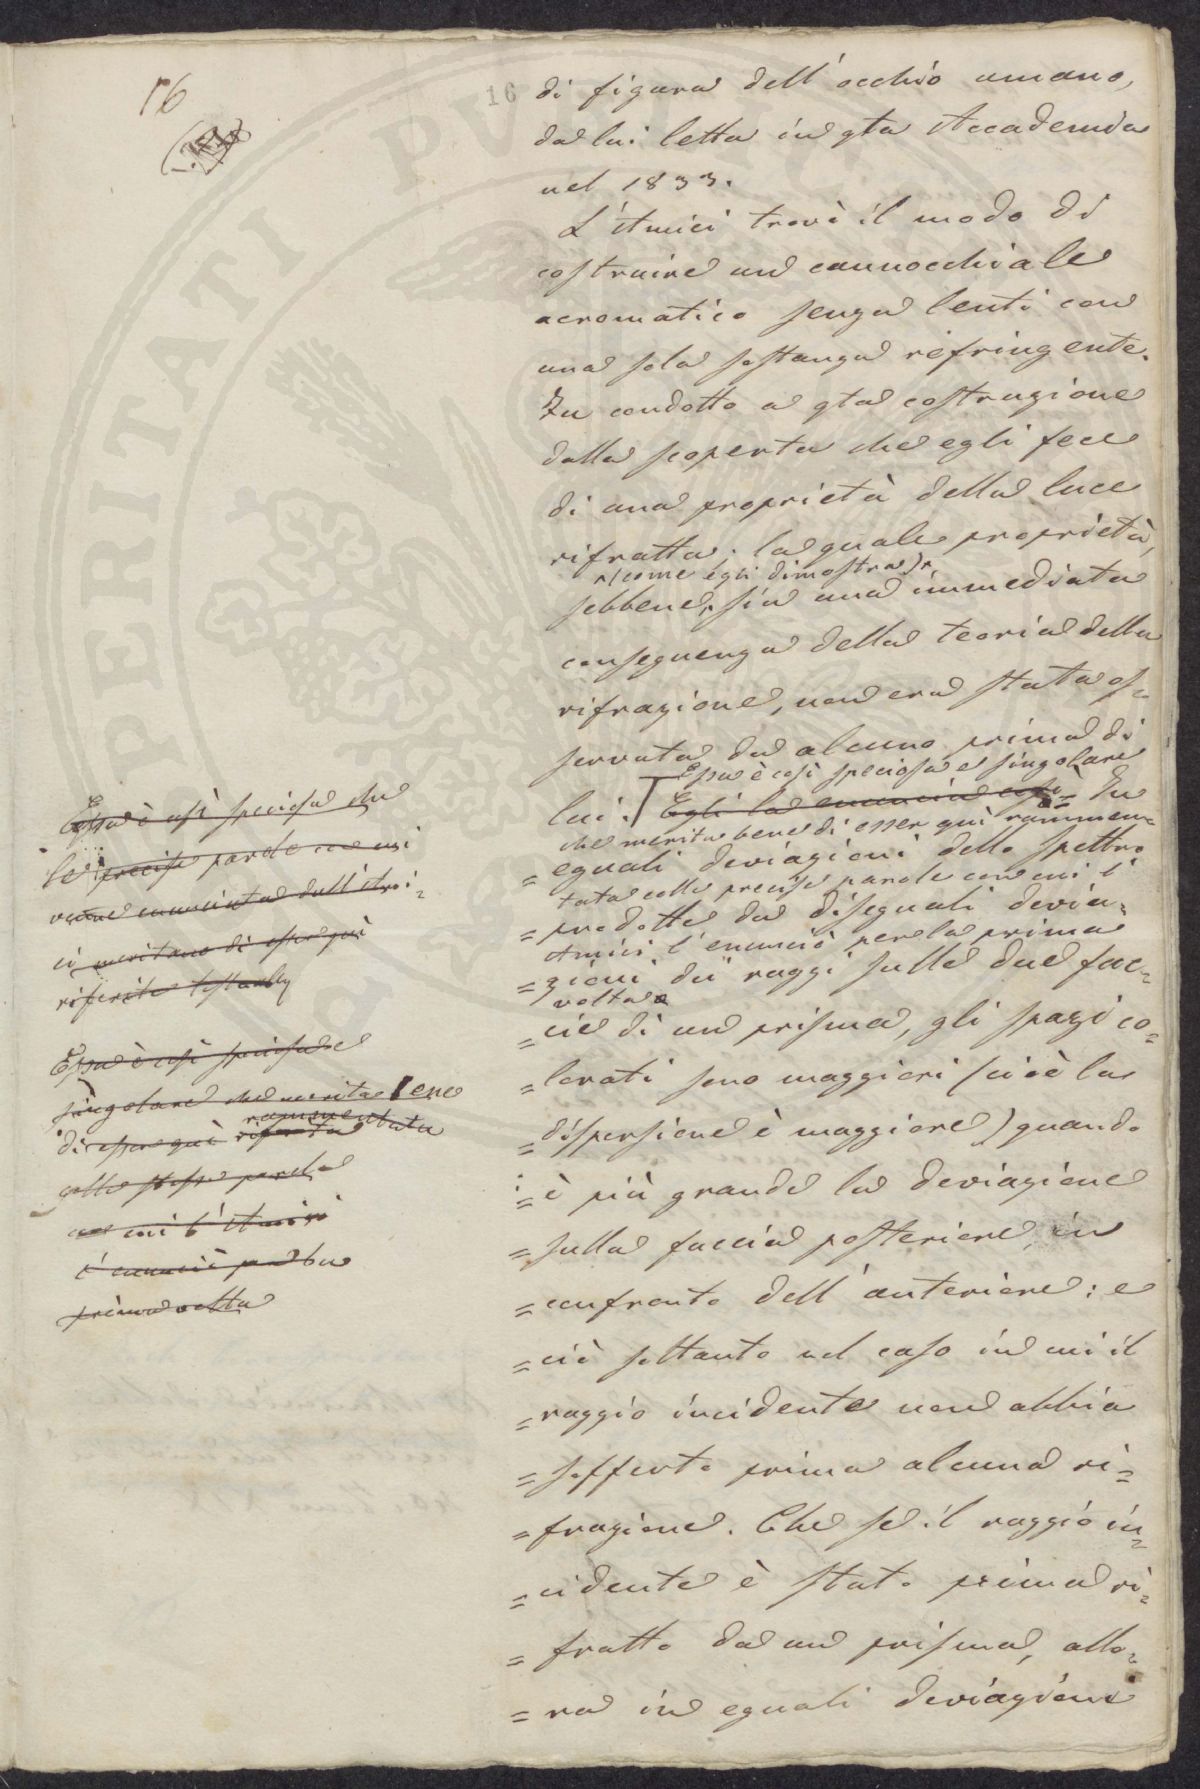 16
16
di figura dell'occhio umano,
da lui letta in qta Accademia
nel 1833.
L'Amici trovò il modo di
costruire un cannocchiale
acromatico senza lenti con
una sola sostanza refringente.
Fu condotto a qta costruzione
dalla scoperta che egli fece
di una proprietà della luce
rifratta; la quale proprietà,
(come egli dimostra)
sebbene sia una immediata
conseguenza della teoria della
rifrazione, non era stata os=
servata da alcuno prima di
Essa è così speciosa e singolare
lui. Egli la enuncia così = In
che merita bene di esser qui rammen=
= eguali deviazioni dello spettro
tata colle precise parole con cui l'
= prodotte da diseguali devia=
Amici l'enunciò per la prima
= zioni dei raggi sulle due fac=
volta
= cie di un prisma, gli spazi co=
= lorati sono maggiori (cioè la
= dispersione è maggiore) quando
= è più grande la deviazione
= sulla faccia posteriore in
= confronto dell'anteriore: e
= ciò soltanto nel caso in cui il
= raggio incidente non abbia
= sofferto prima alcuna ri=
= frazione. Che se il raggio in=
= cidente è stato prima ri=
= fratto da un prisma, allo=
= ra in eguali deviazioni
Essa è così speciosa che
le precise parole con cui
venne enunciata dall'Ami=
ci meritano di esser qui
riferite
Essa è così speciosa e
singolare che merita bene
rammentata
di esser qui riferita
colle stesse parole
con cui l'Amici
l'enunciò per la
prima volta